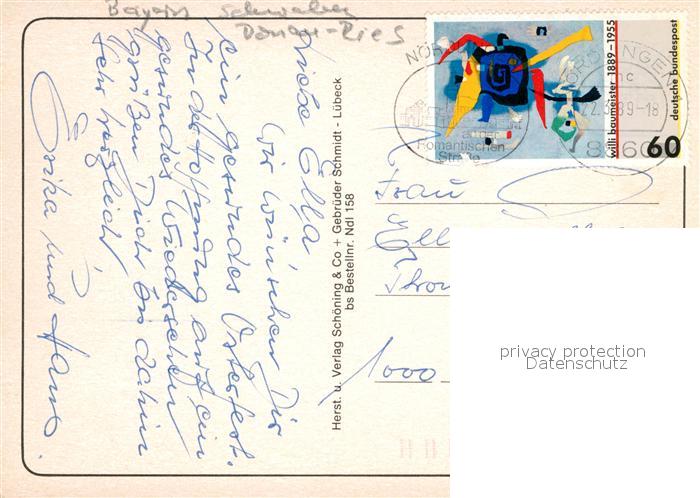 Bayern Schwaben
Donau-Ries
Liebe Ella,
Wir wünschen Dir
ein gesundes Osterfest.
In der Hoffnung auf ein
gesundes Wiedersehen
grüßen Dich bis dahin
sehr herzlich
Erika und Hans.
Herst. u. Verlag Schöning & Co + Gebrüder Schmidt - Lübeck
bs Bestellnr. Ndl 158
willi baumeister 1889-1955
deutsche bundespost
60
NÖRDLINGEN
Romantischen
Straße
nc
22.3.89-18
8860
Frau
Ell
1000
privacy protection
Datenschutz